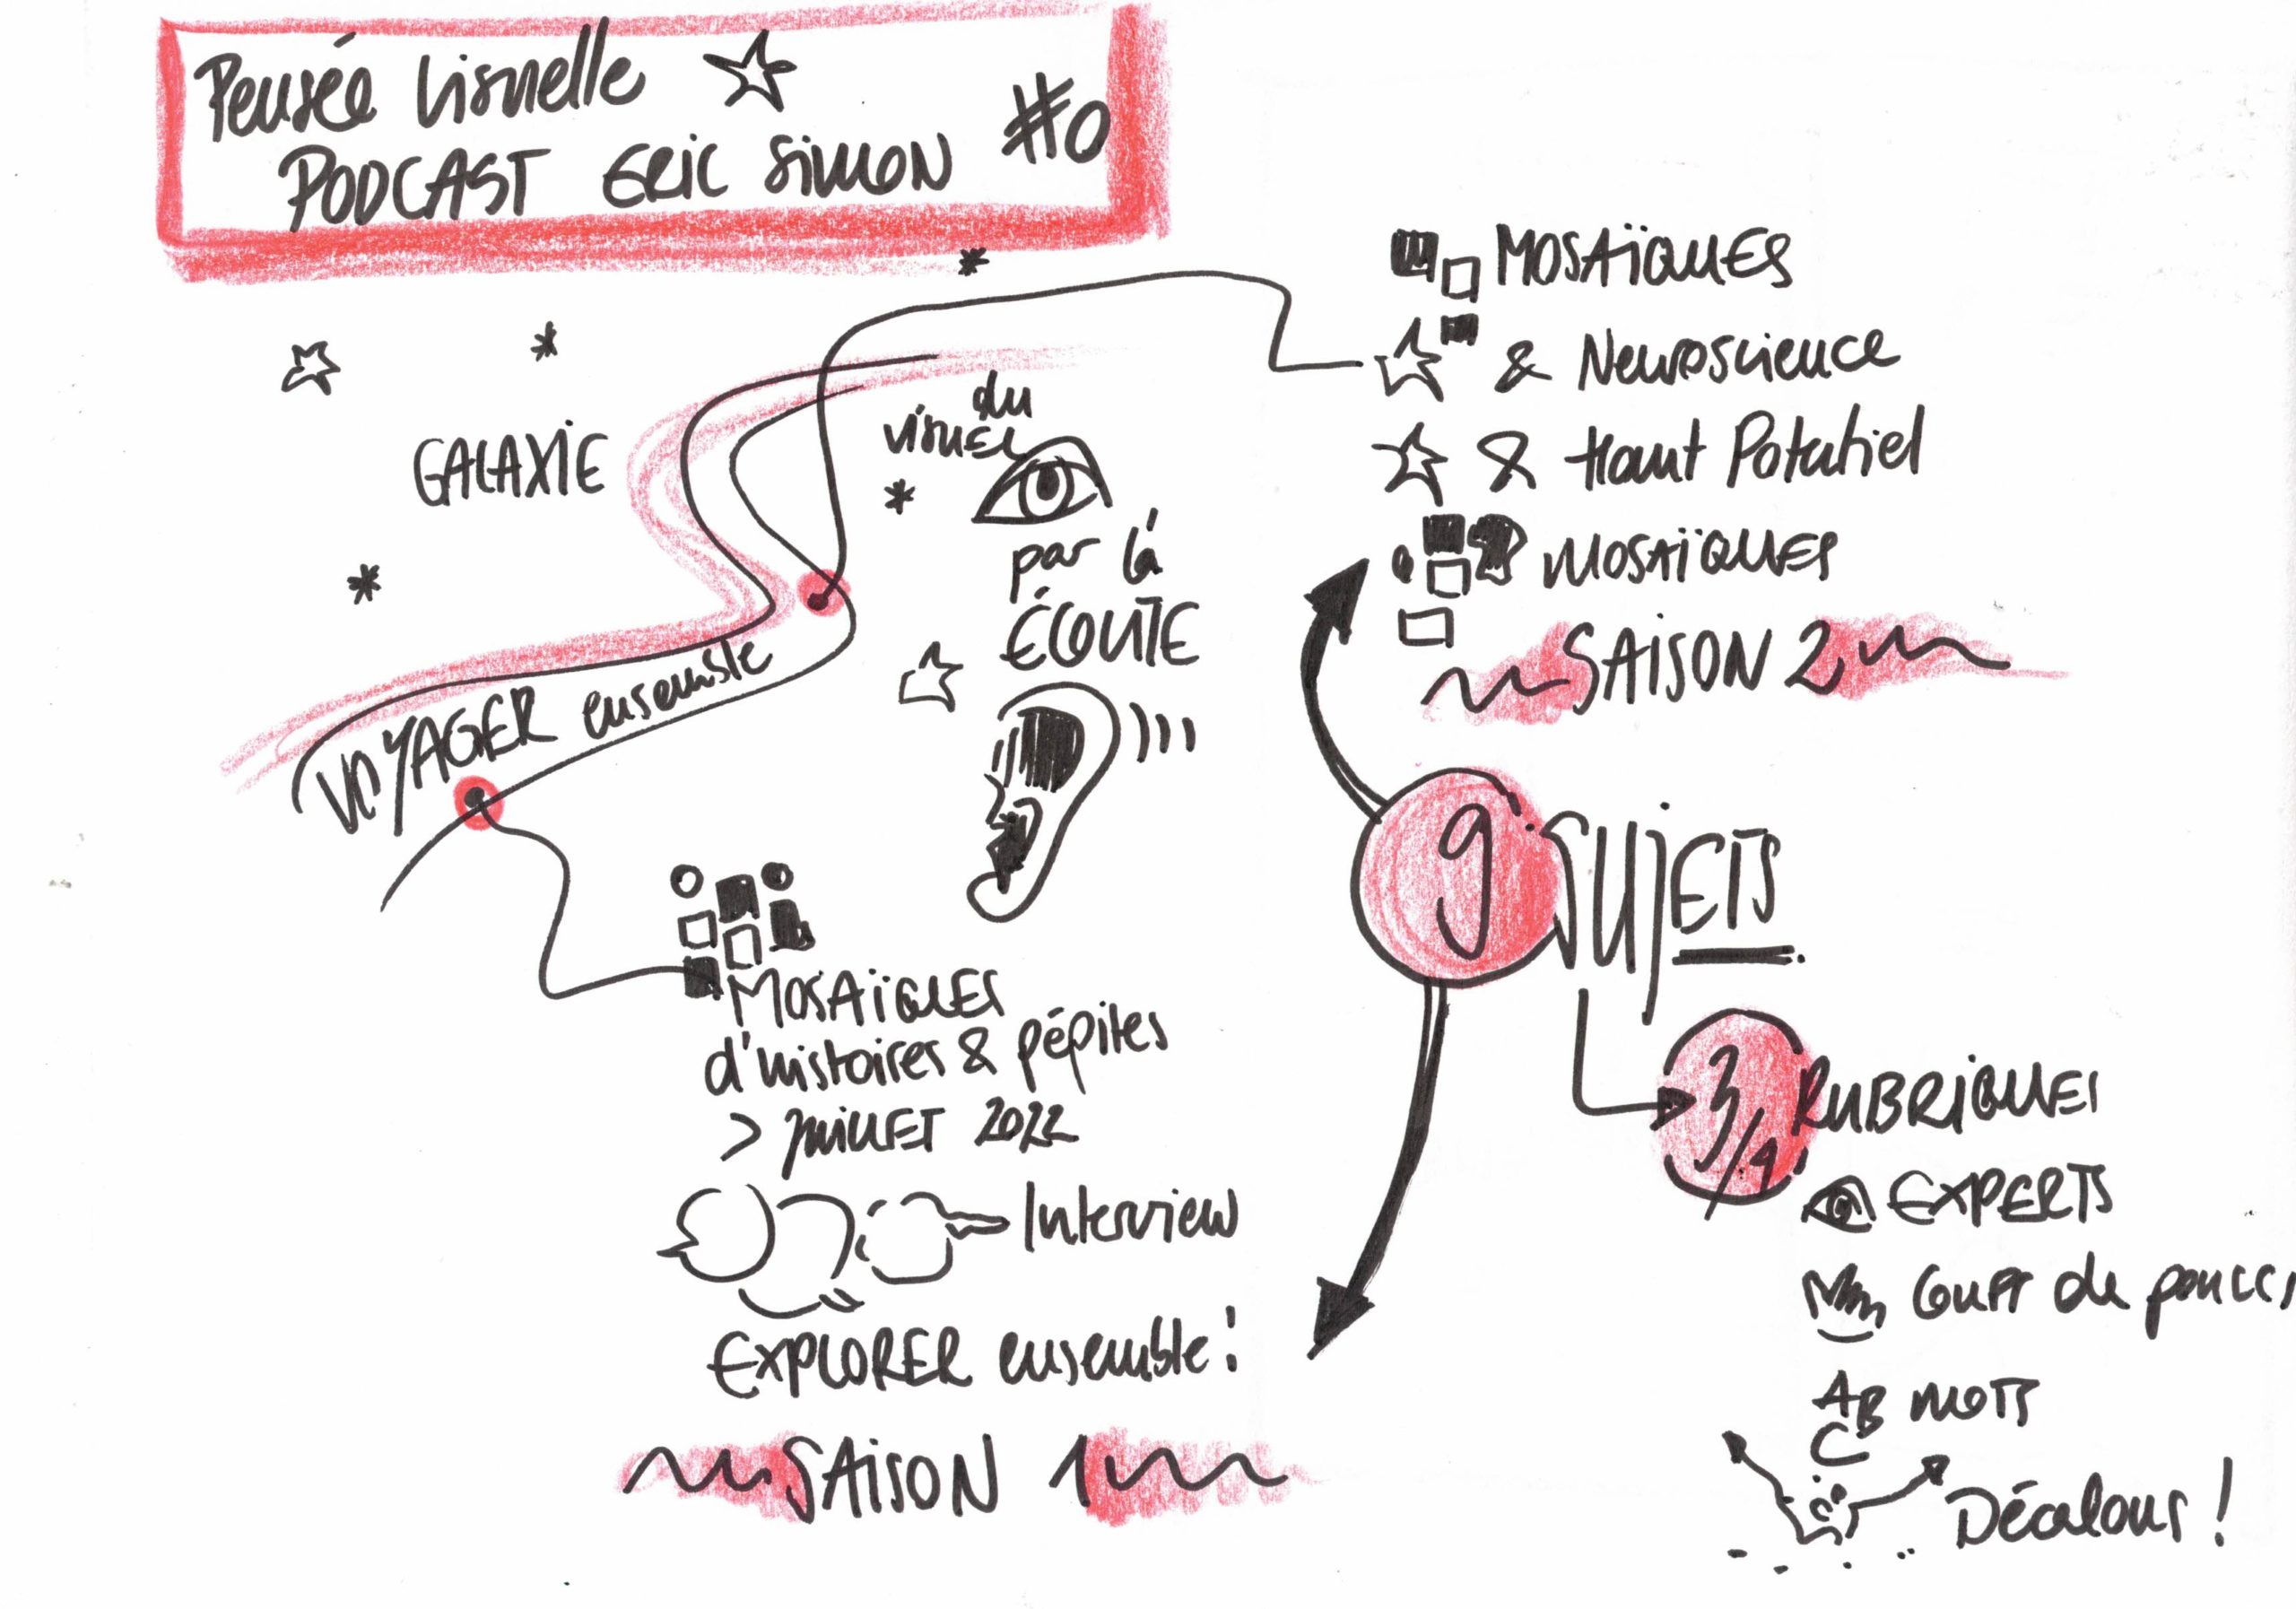 Pensée Visuelle
PODCAST ERIC SIMON #0
GALAXIE
du
visuel
par là
ÉCOUTE
VOYAGER ensemble
MOSAÏQUES
d'histoires & pépites
> JUILLET 2022
Interview
EXPLORER ensemble!
SAISON 1
MOSAÏQUES
& Neuroscience
& Haut Potentiel
MOSAÏQUES
SAISON 2
9 SUJETS
3/4 RUBRIQUES
EXPERTS
Coups de pouces
AB MOTS
C
Décalons!